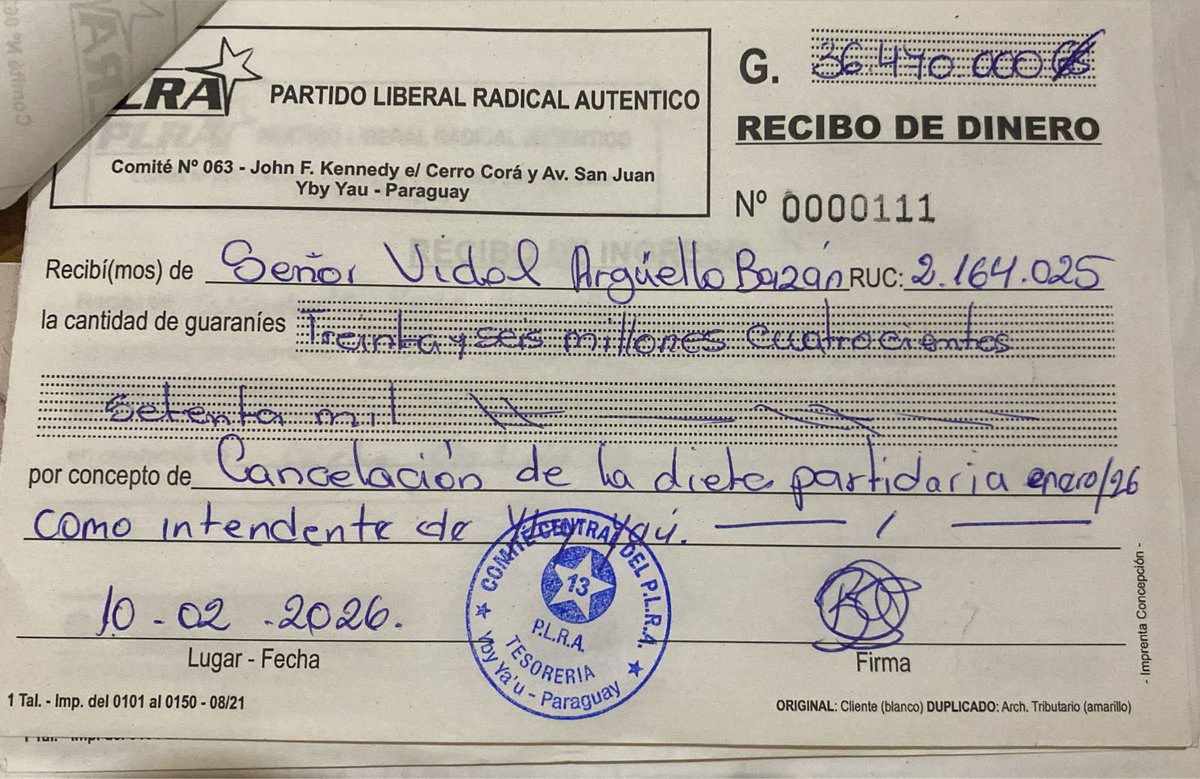 PLRA
PARTIDO LIBERAL RADICAL AUTENTICO
Comité Nº 063 - John F. Kennedy e/ Cerro Corá y Av. San Juan
Yby Yau - Paraguay
G. 36.470.000
RECIBO DE DINERO
Nº 0000111
Recibí(mos) de Señor Vidal Argüello Bazán RUC: 2.164.025
la cantidad de guaraníes Treinta y seis millones cuatrocientos
setenta mil
por concepto de Cancelación de la dieta partidaria enero/26
como intendente de Yby Yaú.
10-02-2026.
Lugar - Fecha
COMITÉ CENTRAL DEL P.L.R.A.
13
P.L.R.A.
TESORERIA
Yby Ya'u - Paraguay
Firma
1 Tal. - Imp. del 0101 al 0150 - 08/21
ORIGINAL: Cliente (blanco) DUPLICADO: Arch. Tributario (amarillo)
- Imprenta Concepción -